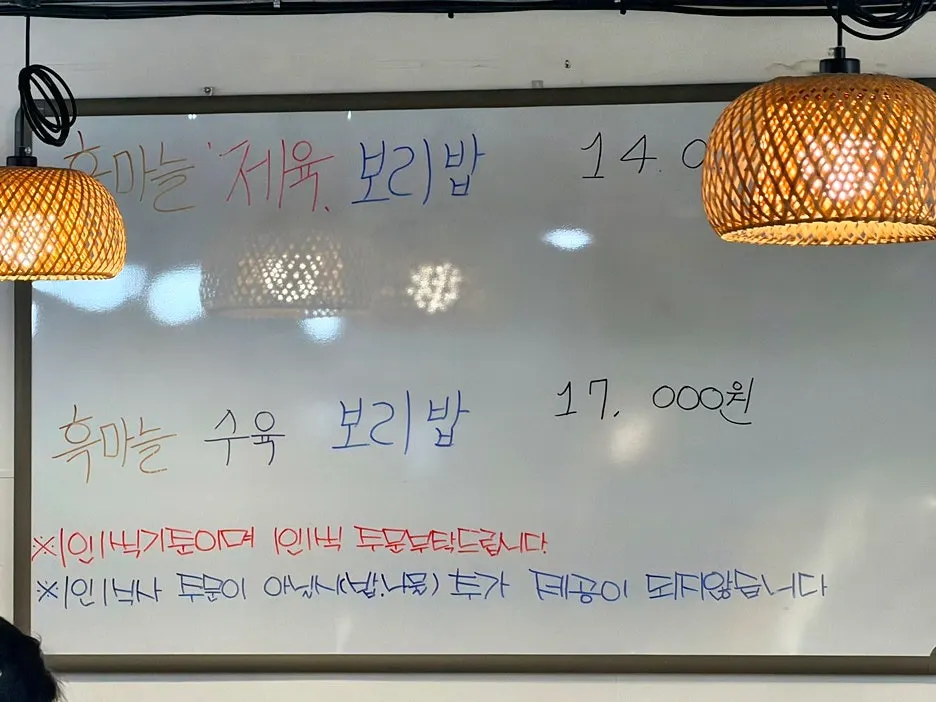 흑마늘 제육 보리밥 14.0
흑마늘 수육 보리밥 17.000원
※1인1식기준이며 1인1식 주문부탁드립니다.
※1인1식사 주문이 아닐시(밥.나물) 추가 제공이 되지않습니다